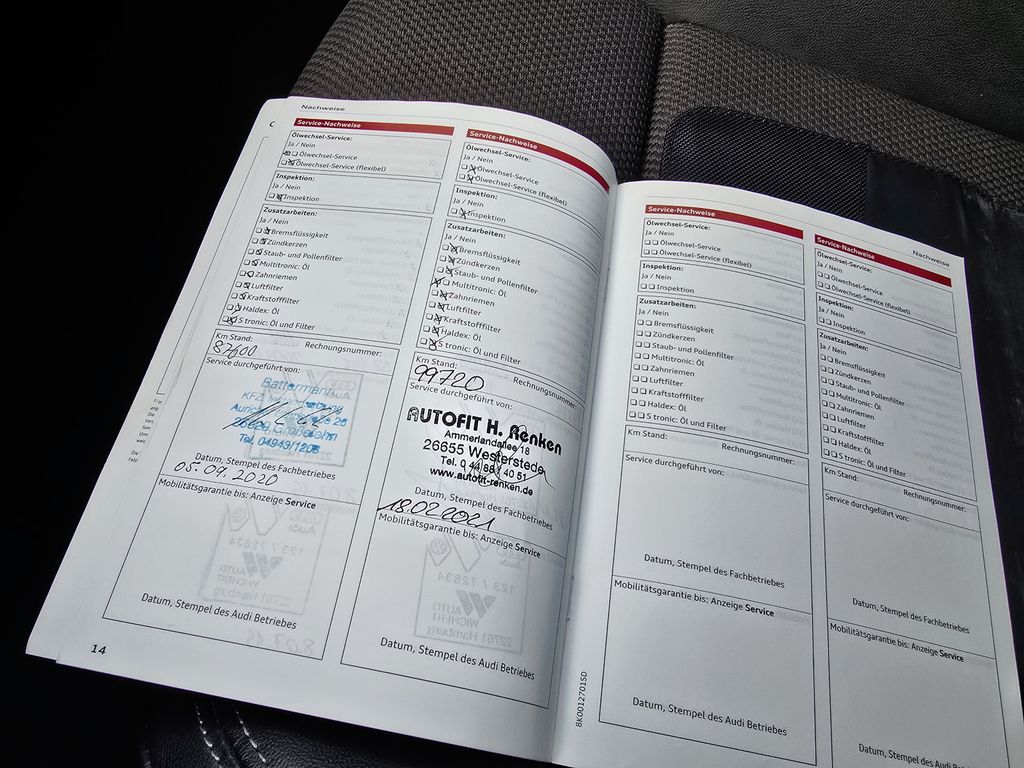 Nachweise
Service-Nachweise
Ölwechsel-Service:
Ja / Nein
Ölwechsel-Service
Ölwechsel-Service (flexibel)
Inspektion:
Ja / Nein
Inspektion
Zusatzarbeiten:
Ja / Nein
Bremsflüssigkeit
Zündkerzen
Staub- und Pollenfilter
Multitronic: Öl
Zahnriemen
Luftfilter
Kraftstofffilter
Haldex: Öl
S tronic: Öl und Filter
Km Stand:
Rechnungsnummer:
87600
Service durchgeführt von:
Battermann
Tel. 04943/1208
Datum, Stempel des Fachbetriebes
05.09.2020
Mobilitätsgarantie bis: Anzeige Service
Datum, Stempel des Audi Betriebes
14
Service-Nachweise
Ölwechsel-Service:
Ja / Nein
Ölwechsel-Service
Ölwechsel-Service (flexibel)
Inspektion:
Ja / Nein
Inspektion
Zusatzarbeiten:
Ja / Nein
Bremsflüssigkeit
Zündkerzen
Staub- und Pollenfilter
Multitronic: Öl
Zahnriemen
Luftfilter
Kraftstofffilter
Haldex: Öl
S tronic: Öl und Filter
Km Stand:
Rechnungsnummer:
99720
Service durchgeführt von:
AUTOFIT H. Renken
Ammerlandallee 18
26655 Westerstede
Tel. 0 44 88 / 40 51
www.autofit-renken.de
Datum, Stempel des Fachbetriebes
18.02.2021
Mobilitätsgarantie bis: Anzeige Service
Datum, Stempel des Audi Betriebes
Service-Nachweise
Ölwechsel-Service:
Ja / Nein
Ölwechsel-Service
Ölwechsel-Service (flexibel)
Inspektion:
Ja / Nein
Inspektion
Zusatzarbeiten:
Ja / Nein
Bremsflüssigkeit
Zündkerzen
Staub- und Pollenfilter
Multitronic: Öl
Zahnriemen
Luftfilter
Kraftstofffilter
Haldex: Öl
S tronic: Öl und Filter
Km Stand:
Rechnungsnummer:
Service durchgeführt von:
Datum, Stempel des Fachbetriebes
Mobilitätsgarantie bis: Anzeige Service
Datum, Stempel des Audi Betriebes
8K0012701SD
Nachweise
Service-Nachweise
Ölwechsel-Service:
Ja / Nein
Ölwechsel-Service
Ölwechsel-Service (flexibel)
Inspektion:
Ja / Nein
Inspektion
Zusatzarbeiten:
Ja / Nein
Bremsflüssigkeit
Zündkerzen
Staub- und Pollenfilter
Multitronic: Öl
Zahnriemen
Luftfilter
Kraftstofffilter
Haldex: Öl
S tronic: Öl und Filter
Km Stand:
Rechnungsnummer:
Service durchgeführt von:
Datum, Stempel des Fachbetriebes
Mobilitätsgarantie bis: Anzeige Service
Datum, Stempel des Audi Betriebes